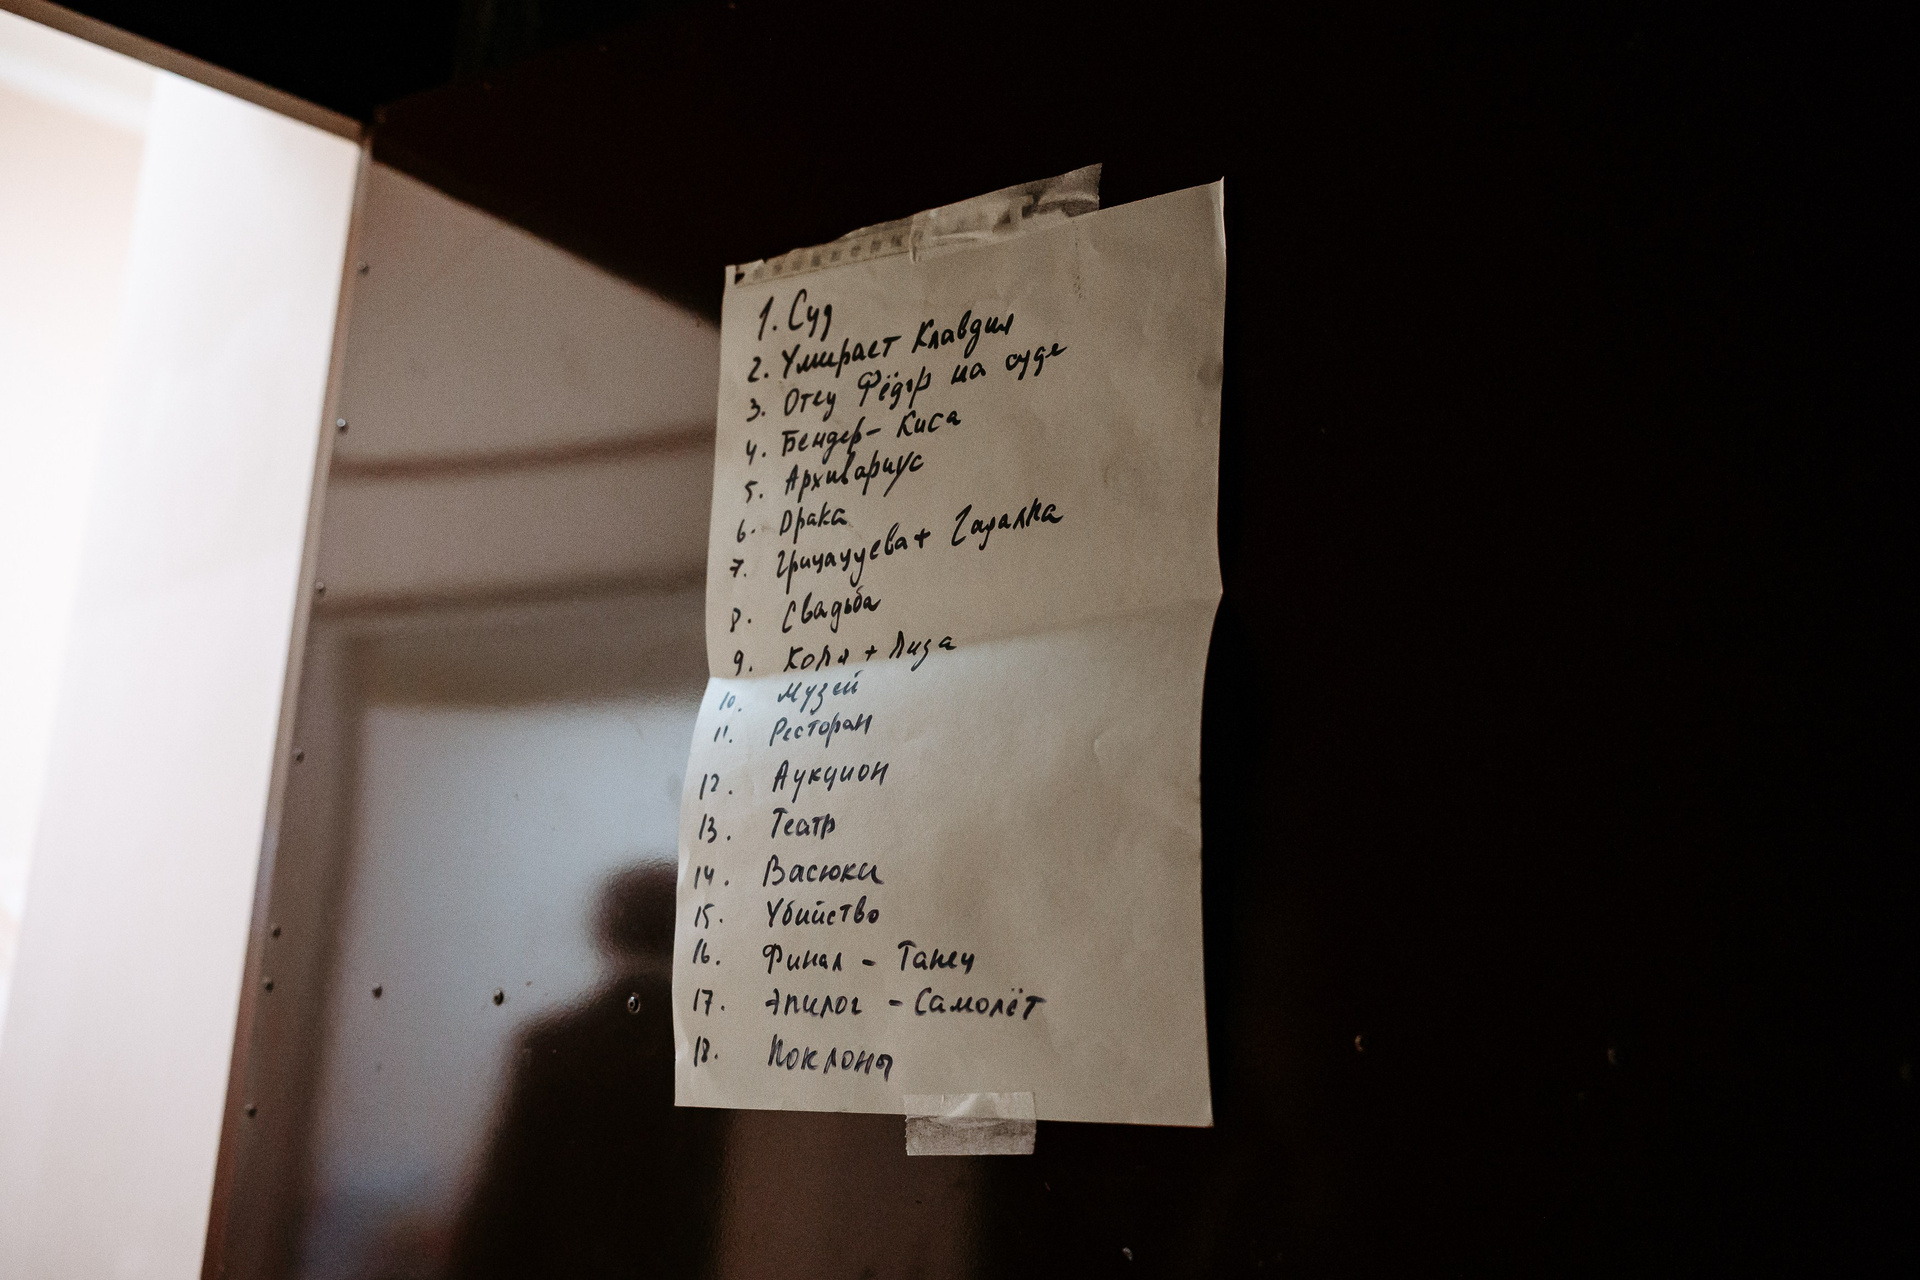 1. Суд
2. Умирает Клавдия
3. Отец Фёдор на суде
4. Бендер - Киса
5. Архивариус
6. Драка
7. Грицацуева + Гадалка
8. Свадьба
9. Коля + Лиза
10. Музей
11. Ресторан
12. Аукцион
13. Театр
14. Васюки
15. Убийство
16. Финал - Танец
17. Эпилог - Самолёт
18. Поклоны